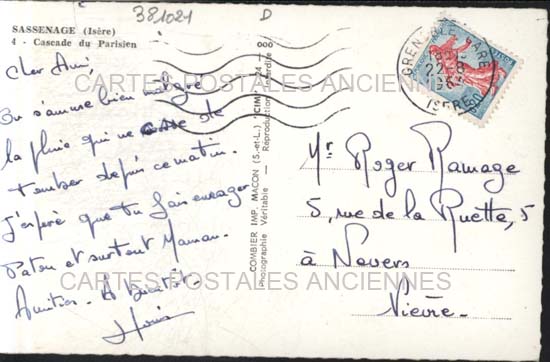 381021 D
SASSENAGE (Isère)
4 - Cascade du Parisien
Cher Ami,
On s'amuse bien malgré
la pluie qui ne cesse de
tomber depuis ce matin.
J'espère que tu fais enrager
Patou et surtout Maman.
Amitiés. A Bientôt.
COMBIER IMP. MACON (S.-et-L.) "CIM"
Photographie Véritable - Reproduction Interdite
GRENOBLE GARE
ISERE
Mr Roger Ramage
5, rue de la Ruette, 5
à Nevers
Nièvre.
CARTES POSTALES ANCIENNES
CARTES POSTALES ANCIENNES